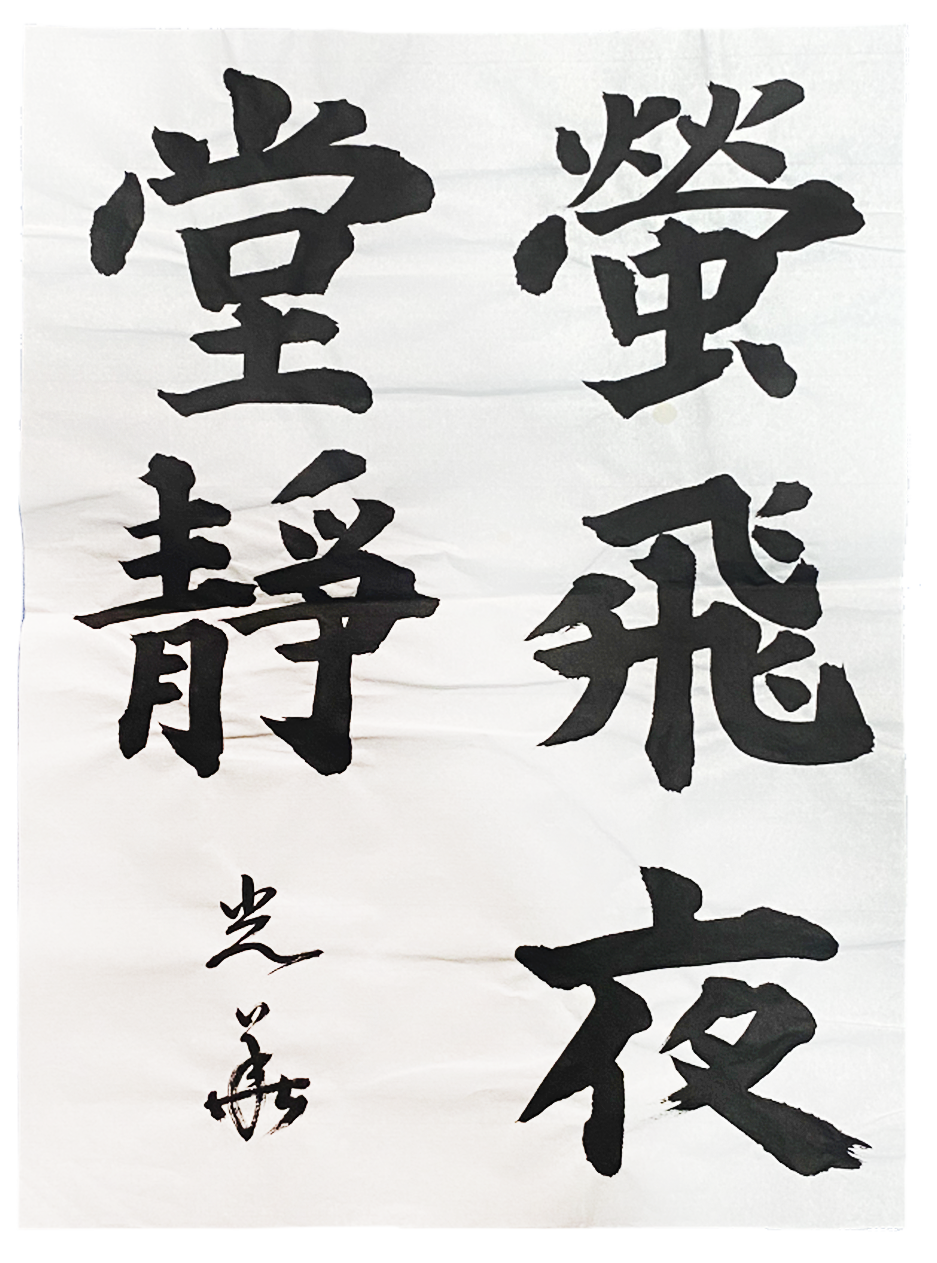 螢飛夜
堂靜
光華